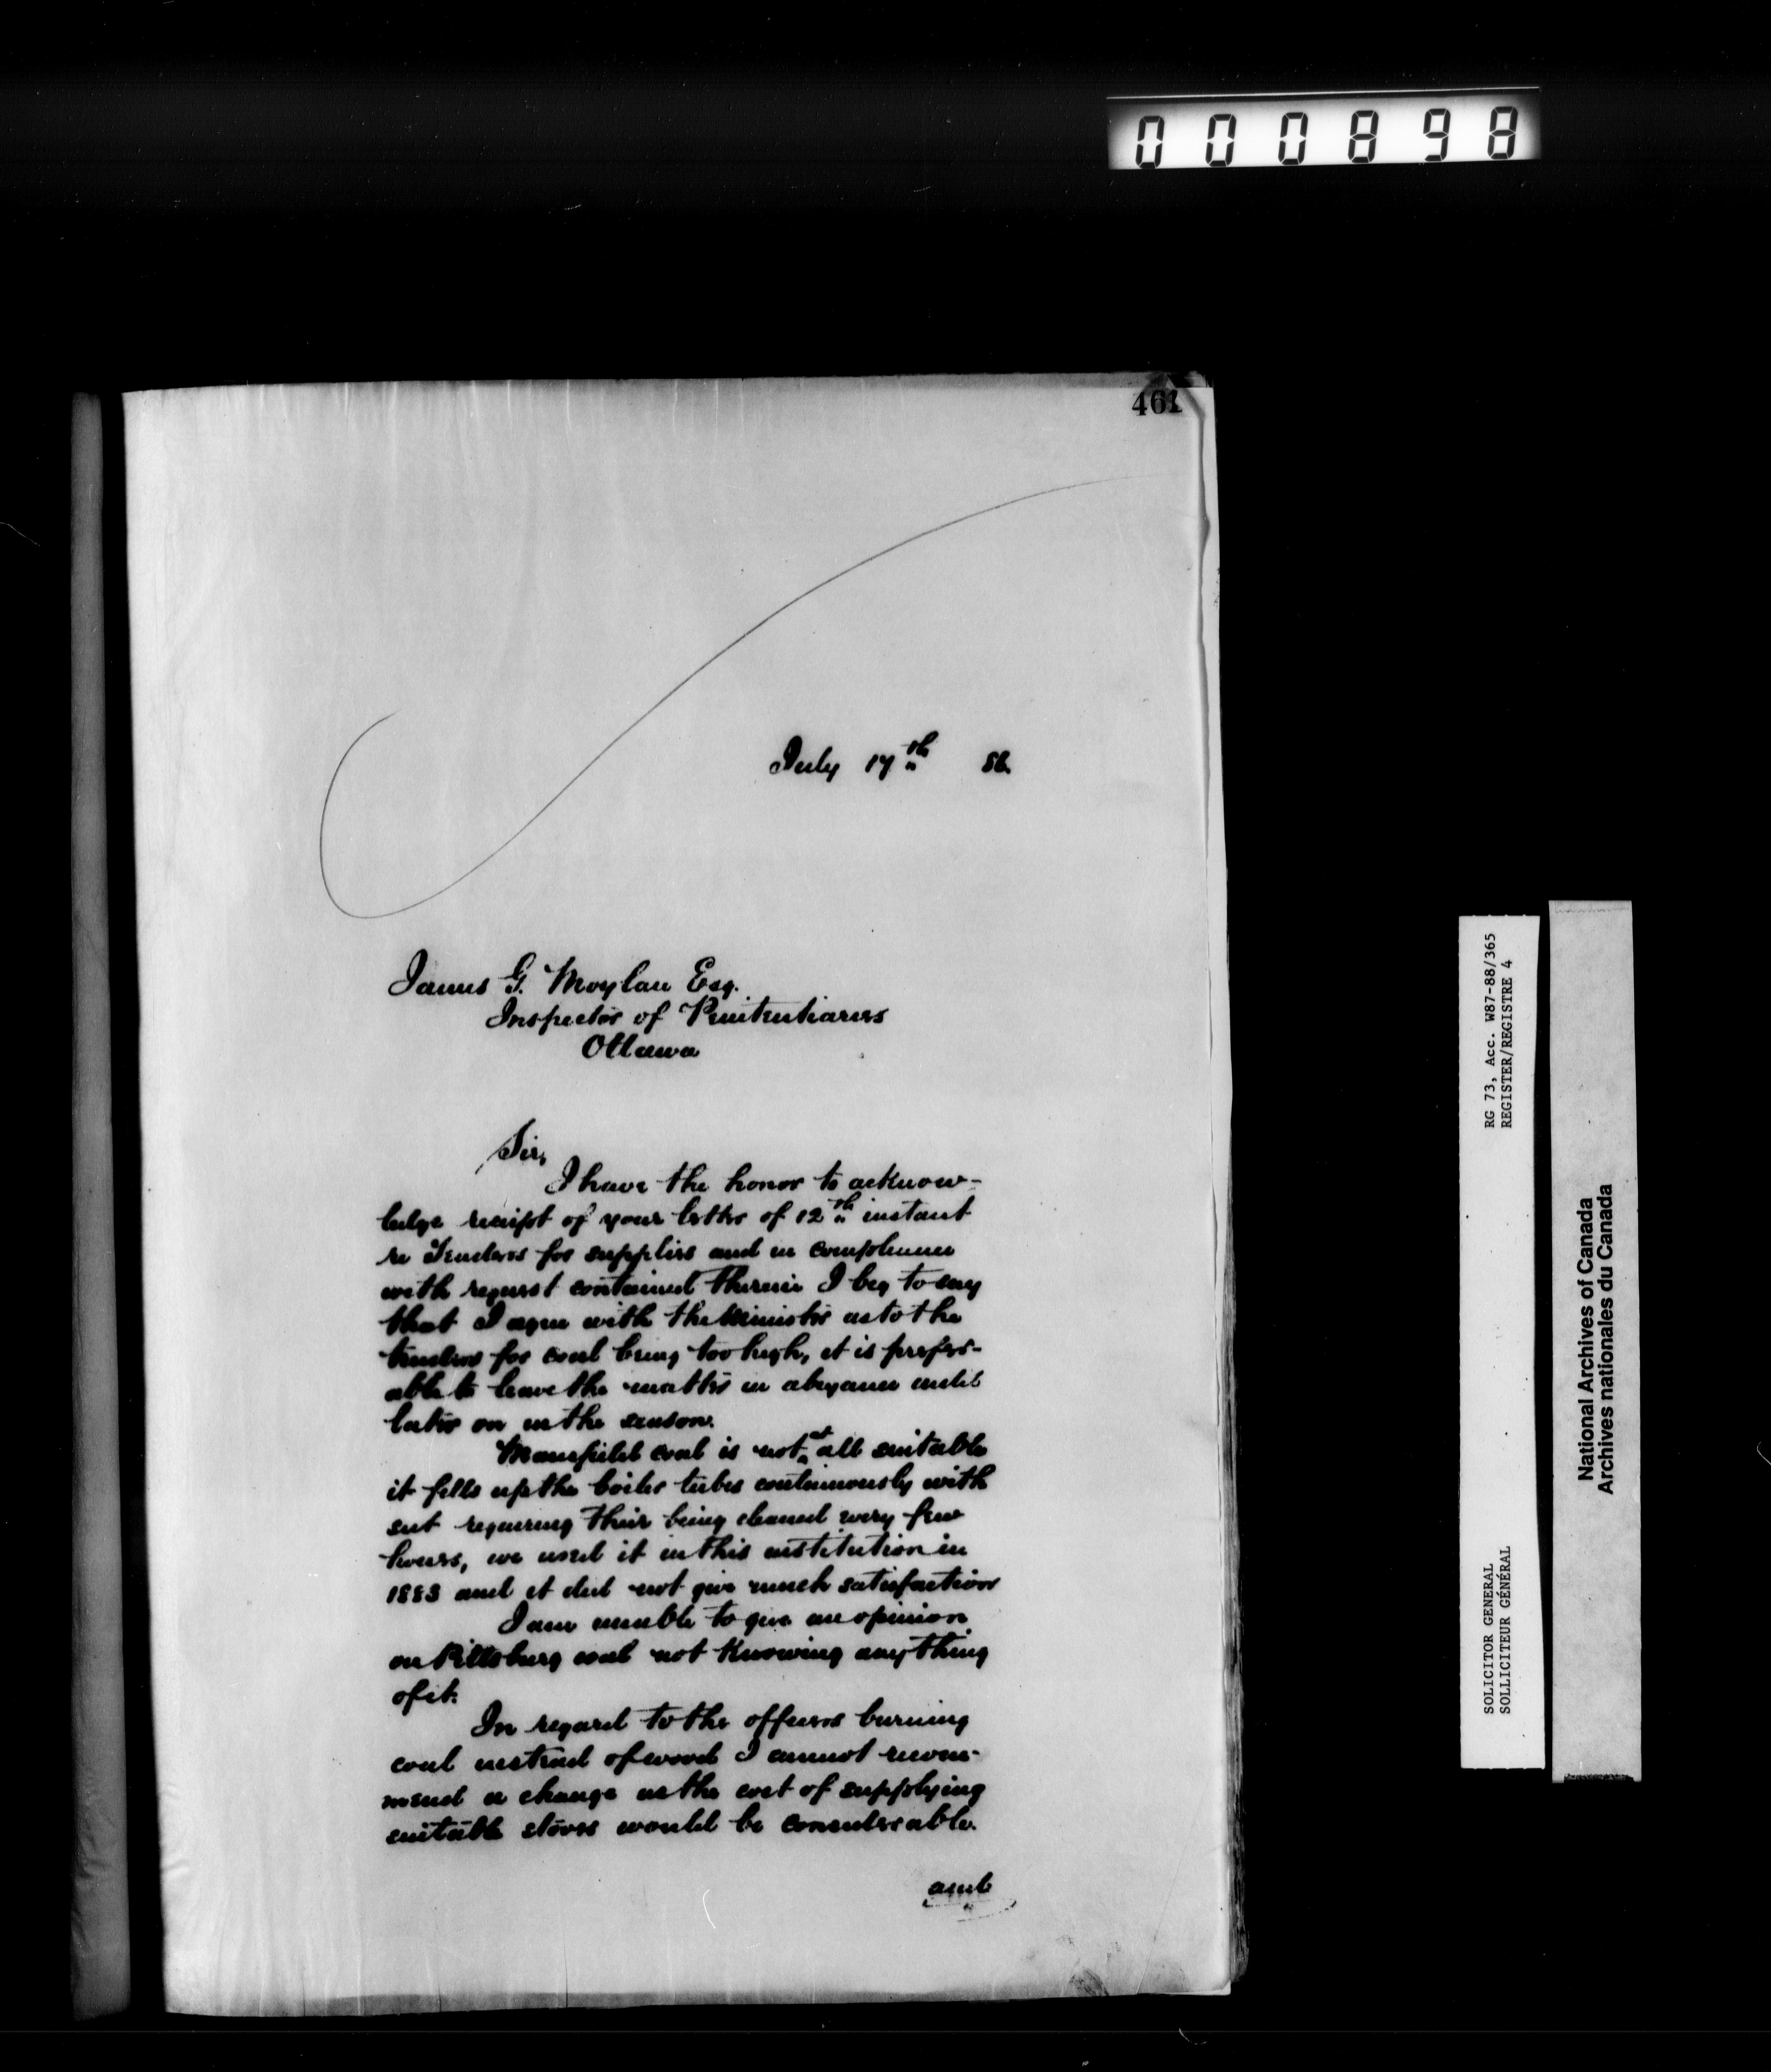 000898
461
July 17th 86.
James G. Moylan Esq.
Inspector of Penitentiaries
Ottawa
Sir,
I have the honor to acknow-
ledge receipt of your letter of 12th instant
re Tenders for supplies and in compliance
with request contained therein I beg to say
that I agree with the Minister as to the
tenders for coal being too high, it is prefer-
able to leave the matter in abeyance until
later on in the season.
Mansfield coal is not at all suitable
it fills up the boiler tubes continuously with
sut requiring their being cleaned every few
hours, we used it in this institution in
1883 and it did not give much satisfaction
I am unable to give an opinion
on Pittsburg coal not knowing anything
of it.
In regard to the officers burning
coal instead of wood I cannot recom-
mend a change as the cost of supplying
suitable stoves would be considerable.
and
RG 73, Acc. W87-88/365
REGISTER/REGISTRE 4
SOLICITOR GENERAL
SOLLICITEUR GÉNÉRAL
National Archives of Canada
Archives nationales du Canada